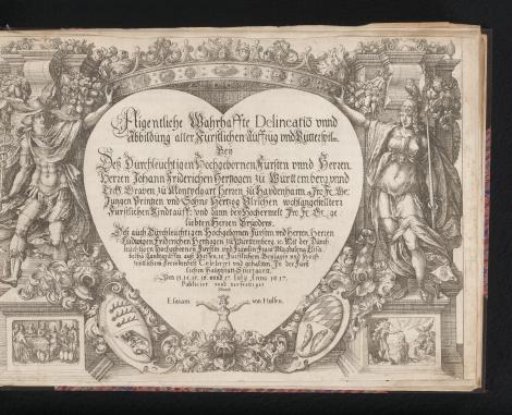 Aigentliche Wahrhaffte Delineatiō vnnd
Abbildung aller Fürstlichen Auffzug vnd Rütterspilen.
Bey
Deß Durchleuchtigen Hochgebornen Fürsten vnnd Herren
Herren Johann Friderichen Hertzogen zu Württemberg vnnd
Teckh. Graven zu Montpelgart Herren zu Haydenhaim
Jungen Printzen vnd Sohns Hertzog Ulrichen wohlangestellter
Fürstlichen Kindtauff: vnd dann bey Hochermelt Ire Fr. G. ge
liebten Herren Brüdern.
Deß auch Durchleuchtigen Hochgebornen Fürsten vnd Herren Herren
Ludwigen Friderichen Hertzogen zu Württemberg. Mit der Durch
leuchtigen Hochgebornen Fürstin vnd Fräwlin Magdalena Elisa
betha Landgräffin auß Hessen. Fürstlichen Beylager vnd Hoch
In der Fürst
lichen Hauptstatt Stuetgart.
Den 13. 14. 15. 16. vnnd 17. Anno 1617
Publiciert vnnd verfertiget
Durch
Esaiam von Hulsen.